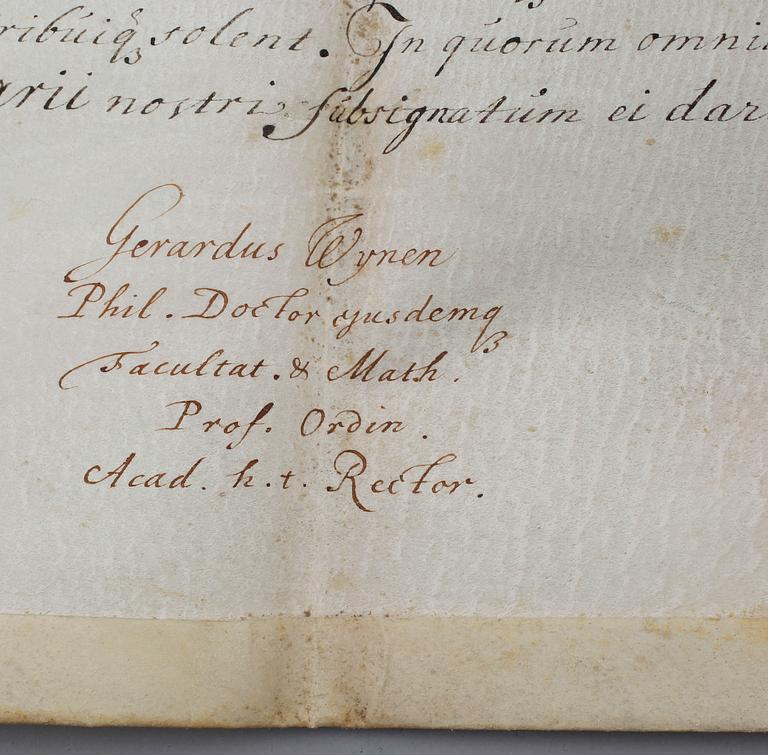 ribuiq₃ solent. In quorum omni
arii nostri subsignatum ei dar
Gerardus Wynen
Phil. Doctor ejusdemq₃
Facultat. & Math.
Prof. Ordin.
Acad. h. t. Rector.